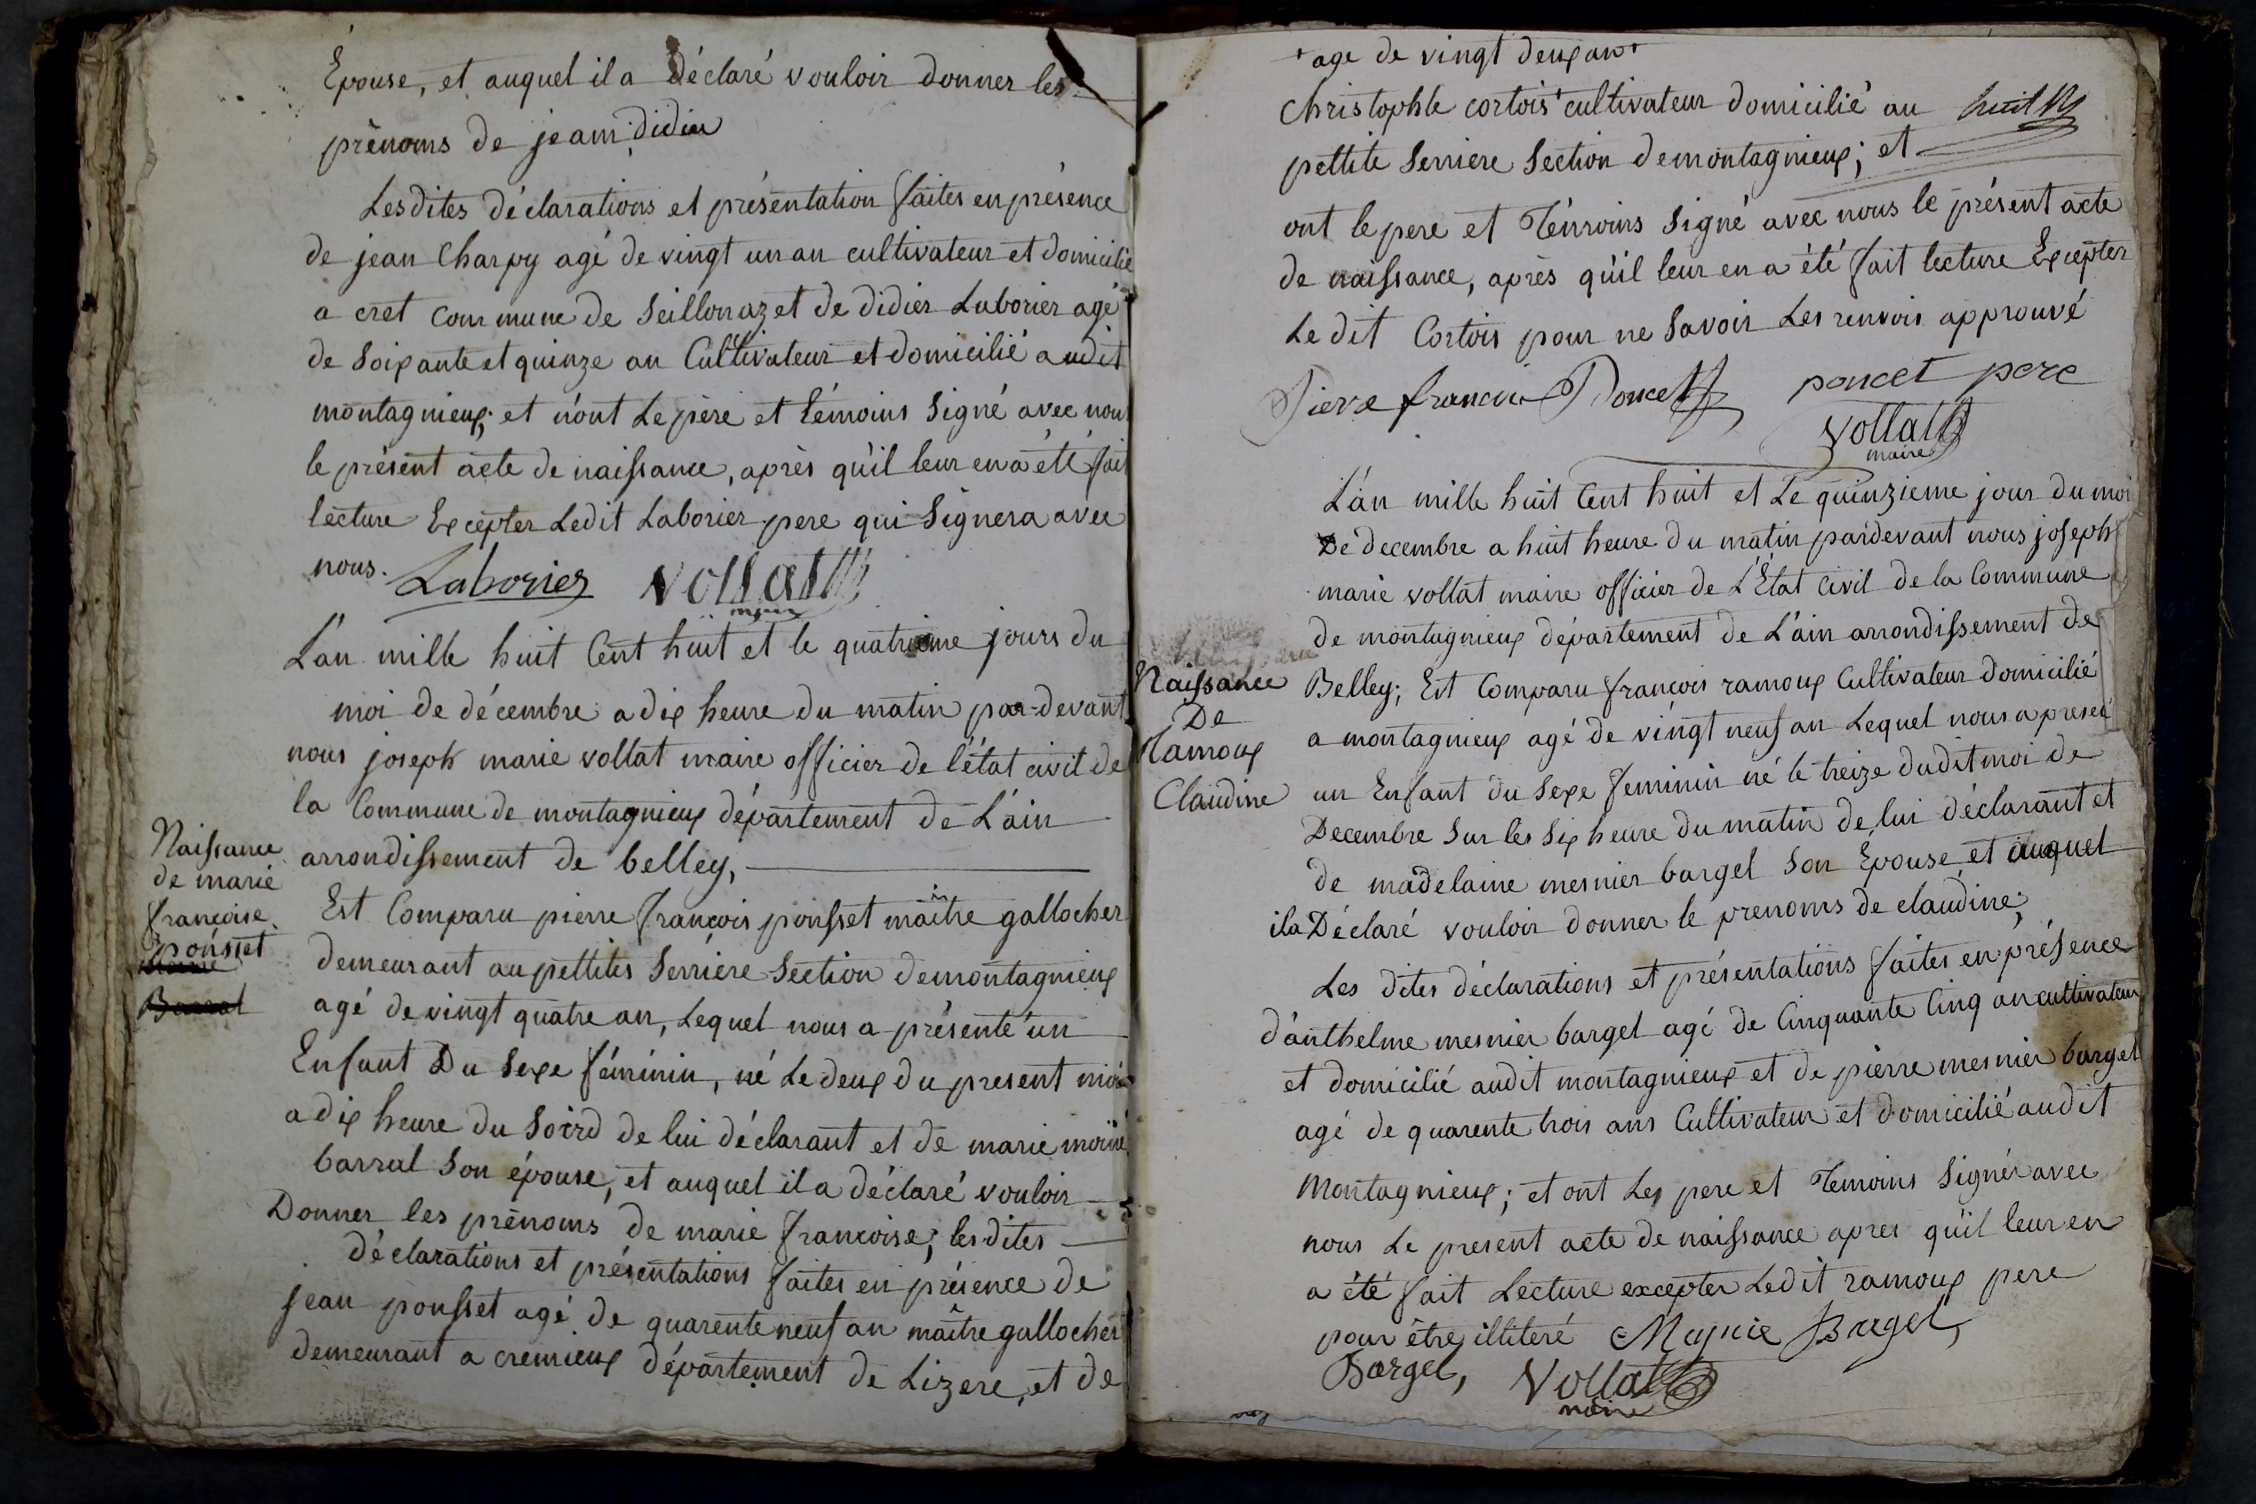 Épouse, et auquel il a déclaré vouloir donner les
prénoms de jean didier
Lesdites déclarations et présentation faites en présence
de jean Charpy agé de vingt un an cultivateur et domicilié
a cret commune de Seillonaz et de didier Laborier agé
de soixante et quinze an Cultivateur et domicilié audit
montagnieux; et n'ont Le père et témoins Signé avec nous
le présent acte de naissance, après qu'il leur en a été fait
lecture Excepter Ledit Laborier pere qui Signera avec
nous. Laborier vollat
maire
L'an mille huit Cent huit et le quatrieme jours du
moi de décembre a dix heure du matin par-devant
nous joseph marie vollat maire officier de l'état civil de
la Commune de montagnieux département de L'ain
arrondissement de belley,
Naissance
de marie
françoise
ponsset
Barral
Est Comparu pierre françois ponsset maître gallocher
demeurant au pettites Serriere Section de montagnieux
agé de vingt quatre an, Lequel nous a présenté un
Enfant Du Sexe féminin, né Le deux du present moi
a dix heure du Soird de lui déclarant et de marie moine
barral Son épouse, et auquel il a déclaré vouloir
Donner les prénoms de marie françoise; lesdites
déclarations et présentations faites en présence de
jean ponsset agé de quarente neuf an maître gallocher
demeurant a cremieux département de Lizere, et de
+ age de vingt deux an +
Christophle cortois + cultivateur domicilié au
pettite Serriere Section de montagnieux; et
ont le pere et Témoins Signé avec nous le présent acte
de naissance, après qu'il leur en a été fait lecture Excepter
Le dit Cortois pour ne Savoir Les renvois approuvé
Pierre francoi Poncet poncet pere
vollat
maire
L'an mille huit Cent huit et Le quinzieme jour du moi
De decembre a huit heure du matin pardevant nous joseph
marie vollat maire officier de L'État Civil de la Commune
de montagnieux département de L'ain arrondissement de
Naissance
De
Ramoux
Claudine
Belley; Est Comparu françois ramoux Cultivateur domicilié
a montagnieux agé de vingt neuf an Lequel nous a presen
un Enfant du Sexe feminin né le treize dudit moi de
Decembre Sur les Six heure du matin de lui déclarant et
de madelaine mesnier barget Son Epouse, et auquel
il a Déclaré vouloir donner le prenoms de claudine;
Les dites déclarations et présentations faites en présence
d'anthelme mesnier barget agé de Cinquante Cinq an cultivateur
et domicilié audit montagnieux et de pierre mesnier barget
agé de quarente trois ans Cultivateur et domicilié audit
Montagnieux; et ont Les pere et Temoins Signér avec
nous Le present acte de naissance apres qu'il leur en
a été fait Lecture excepter Ledit ramoux pere
pour être illiteré
Barget, Vollat
maire